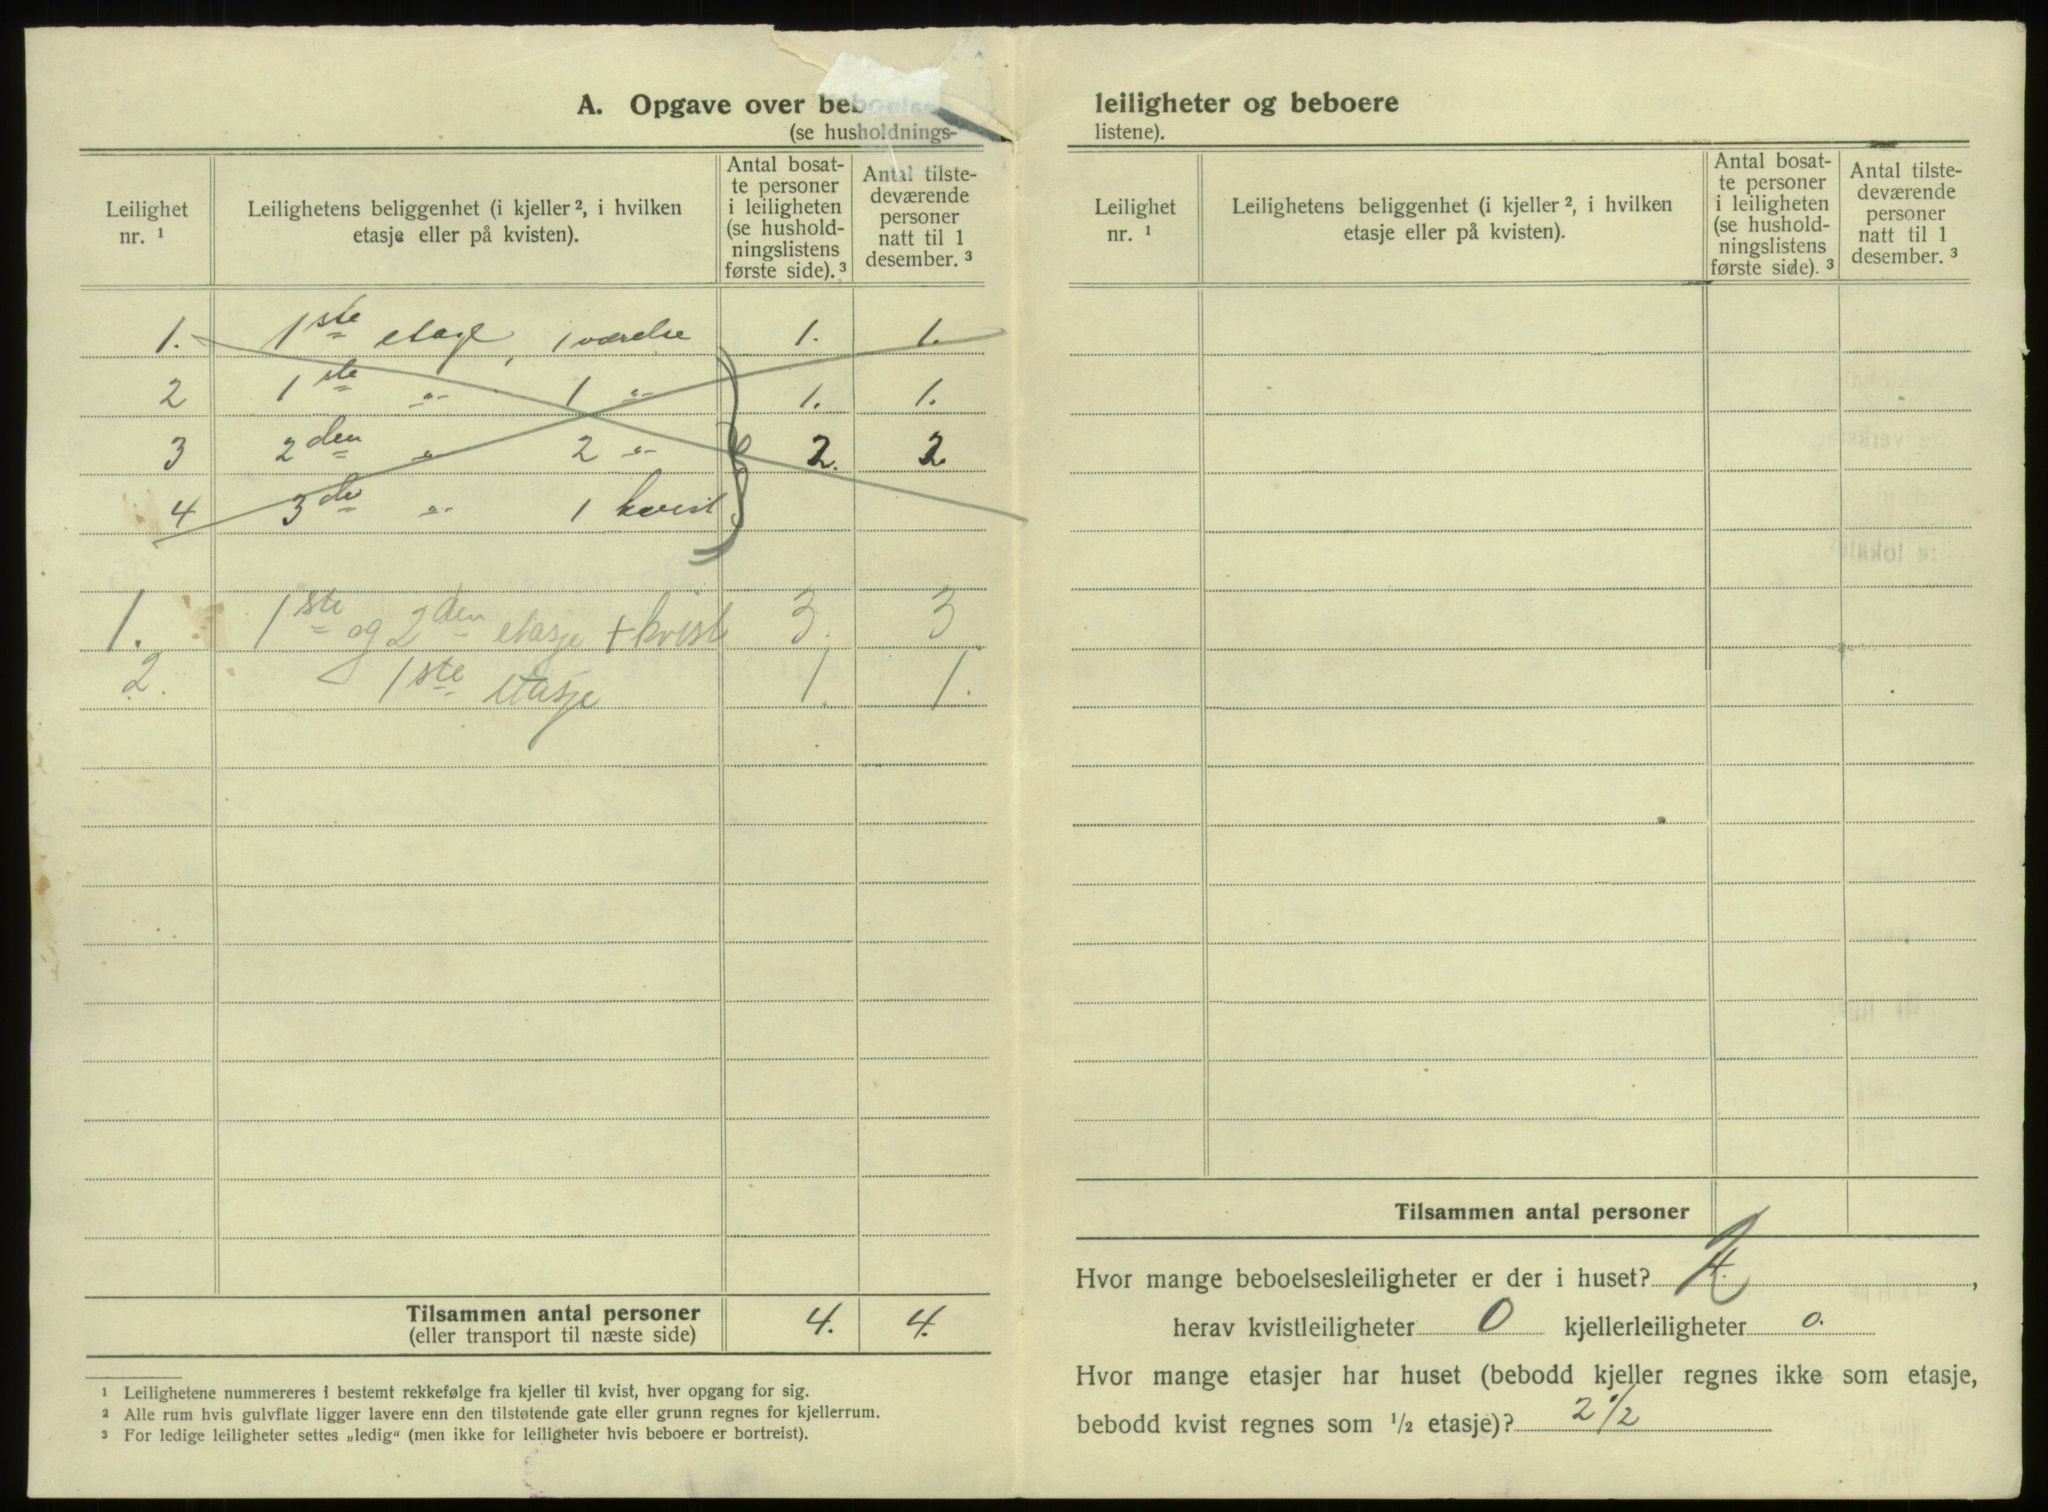 A. Opgave over leiligheter og beboere
(se husholdnings- listene).
Leilighet nr. ¹
Leilighetens beliggenhet (i kjeller ², i hvilken etasje eller på kvisten).
Antal bosat-
te personer
i leiligheten
(se hushold-
ningslistens
første side). ³
Antal tilste-
deværende
personer
natt til 1
desember. ³
1. 1ste etage, 1 værelse 1. 1.
2 1ste „ 1 „ 1. 1.
3 2den „ 2 „ 2. 2
4 3de „ 1 kvist
1. 1ste og 2den etasje + kvist 3. 3
2. 1ste etasje 1. 1.
Tilsammen antal personer 4. 4.
(eller transport til næste side)
¹ Leilighetene nummereres i bestemt rekkefølge fra kjeller til kvist, hver opgang for sig.
² Alle rum hvis gulvflate ligger lavere enn den tilstøtende gate eller grunn regnes for kjellerrum.
³ For ledige leiligheter settes „ledig“ (men ikke for leiligheter hvis beboere er bortreist).
Leilighet nr. ¹
Leilighetens beliggenhet (i kjeller ², i hvilken etasje eller på kvisten).
Antal bosat-
te personer
i leiligheten
(se hushold-
ningslistens
første side). ³
Antal tilste-
deværende
personer
natt til 1
desember. ³
Tilsammen antal personer
Hvor mange beboelsesleiligheter er der i huset? 2,
herav kvistleiligheter 0 kjellerleiligheter 0.
Hvor mange etasjer har huset (bebodd kjeller regnes ikke som etasje,
bebodd kvist regnes som ½ etasje)? 2 1/2